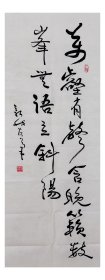 萬壑有聲含晚籟數
峯無語立斜陽